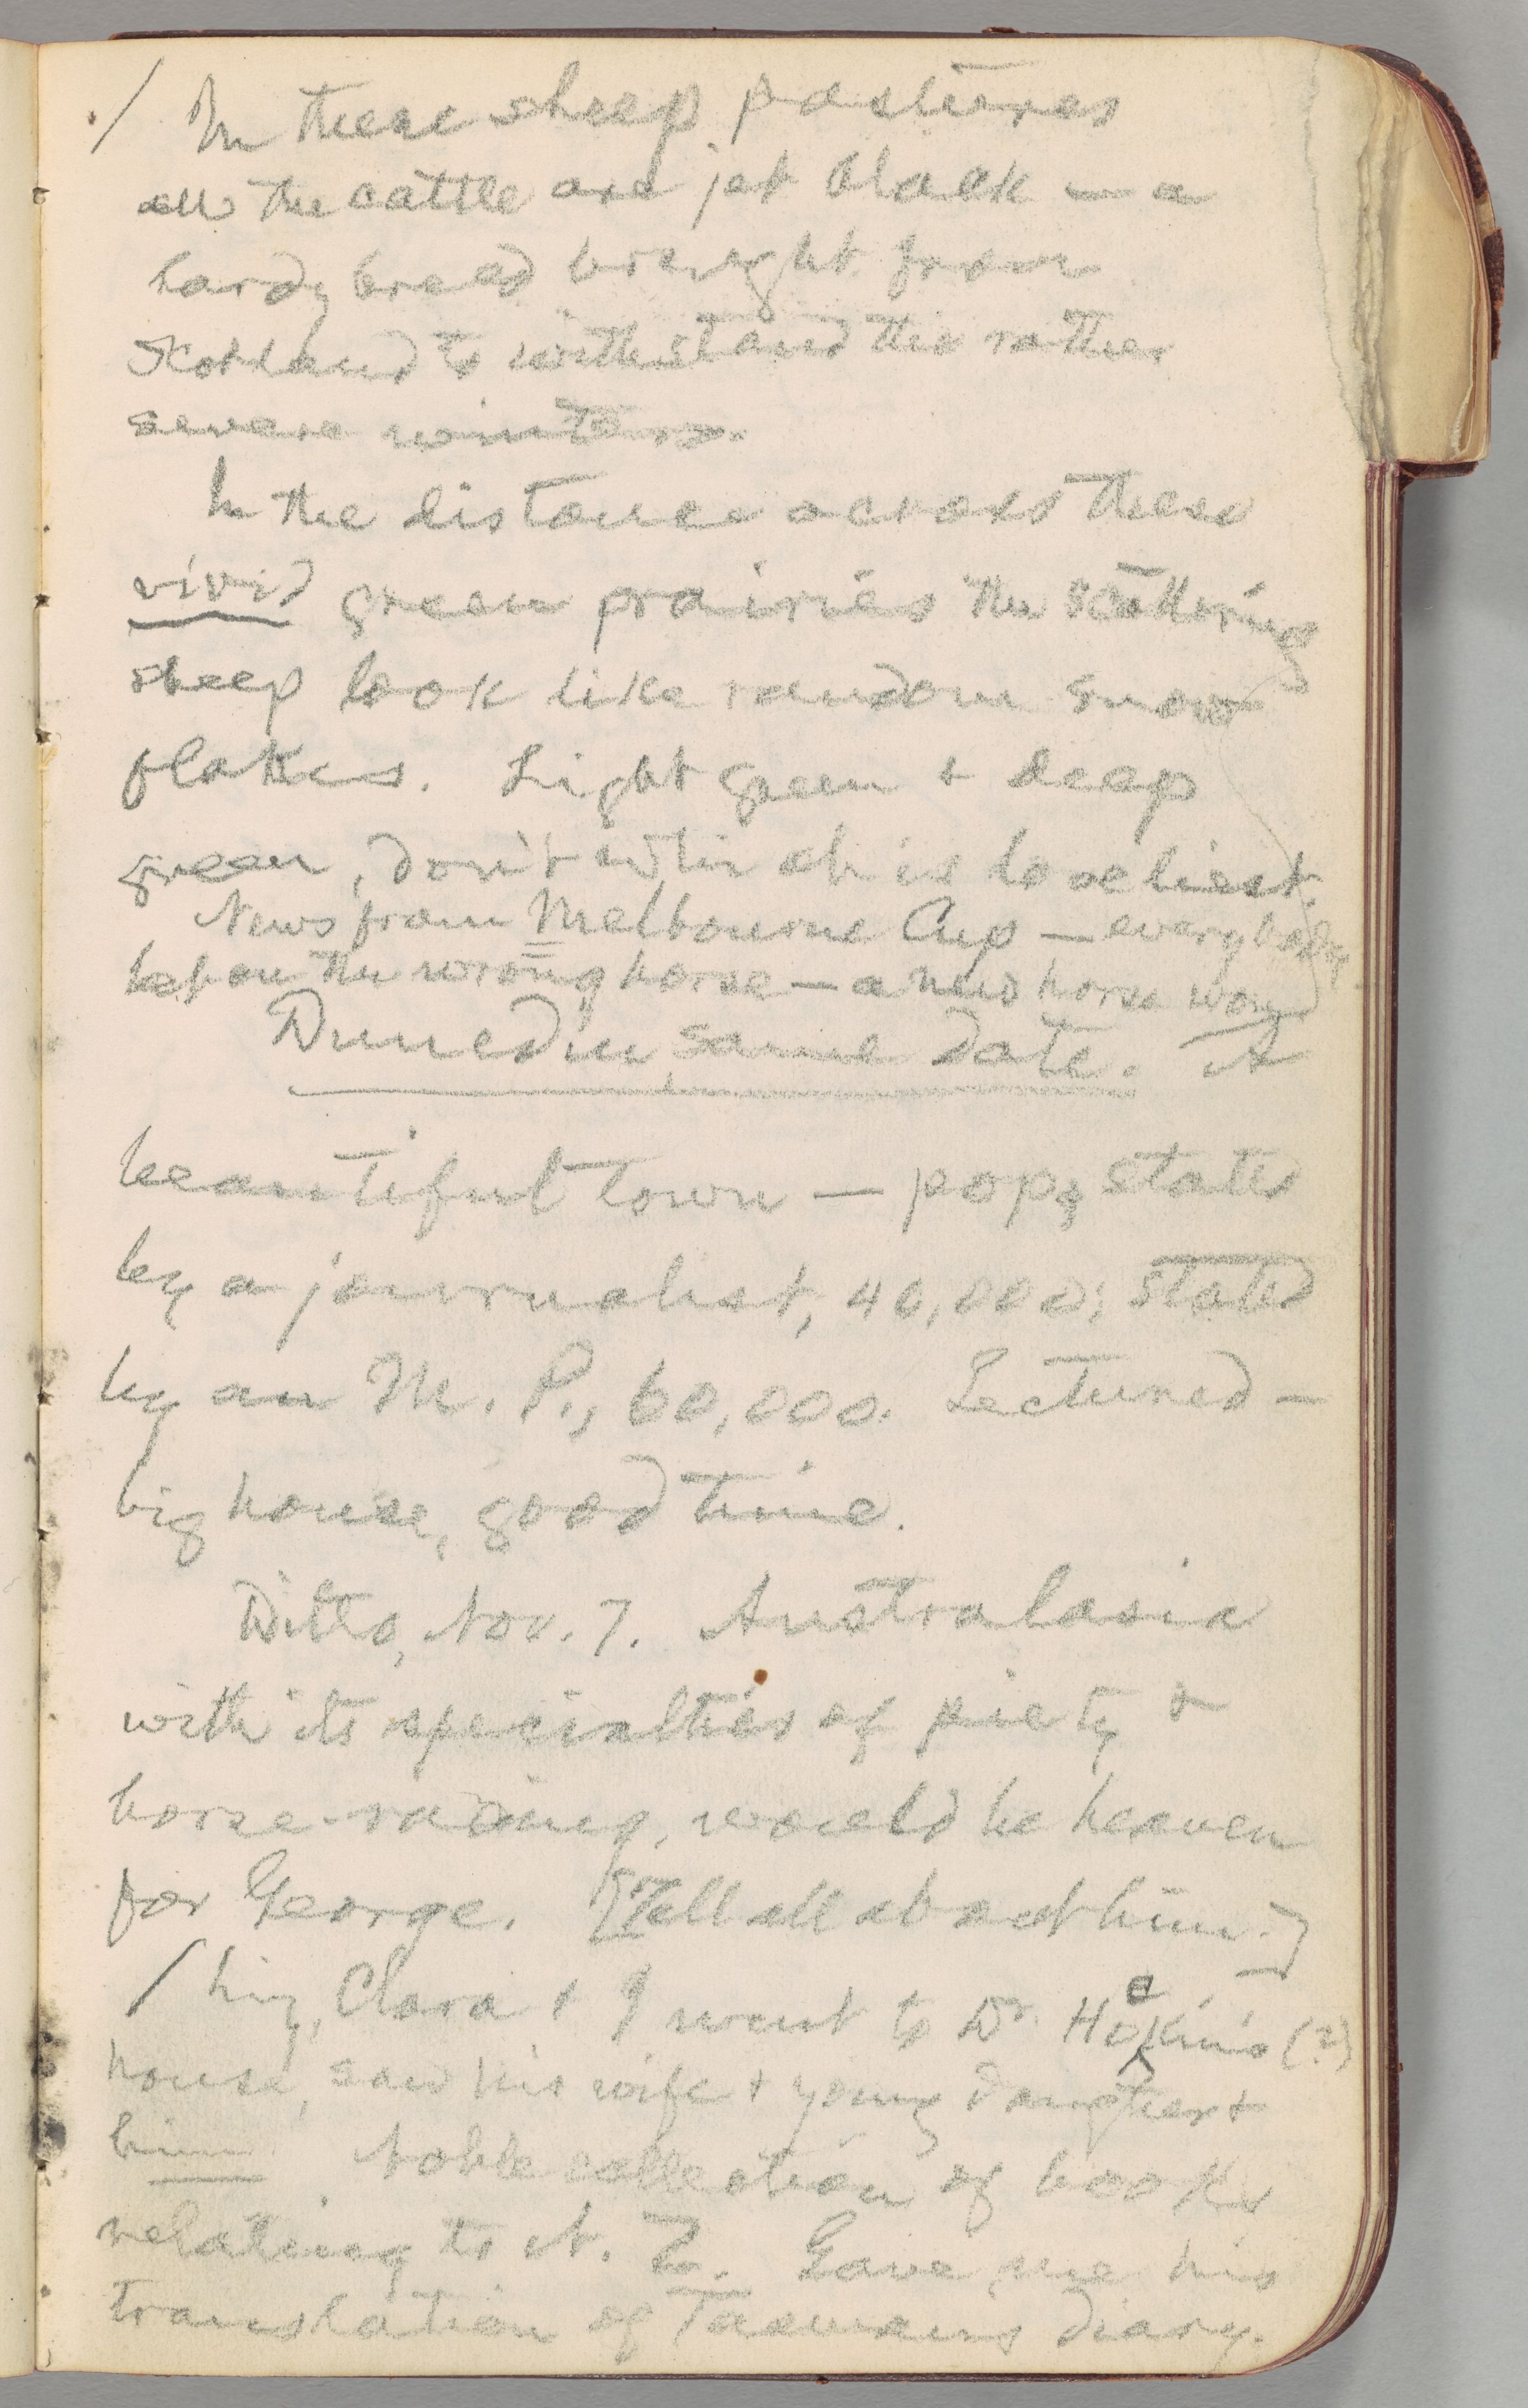 / In these sheep pastures
all the cattle are jet black — a
hardy breed brought from
Scotland to withstand the rather
severe winters.
In the distance across these
vivid green prairies the scattering
sheep look like random snow
flakes. Light green & deep
green, don't wh which is loveliest.
News from Melbourne Cup — everybody
bet on the wrong horse — a new horse won
Dunedin, same date. A
beautiful town — pop, stated
by a journalist, 40,000; stated
by an M. P., 60,000. Lectured —
big house, good time.
Ditto, Nov. 7. Australasia
with its specialties of piety &
horse-racing, would be heaven
for George. [Tell all about him.]
/ Livy, Clara & I went to Dr. Hockin's (?)
house, saw his wife & young daughter &
him. Noble collection of books
relating to N. Z. Gave me his
translation of Tasman's diary.